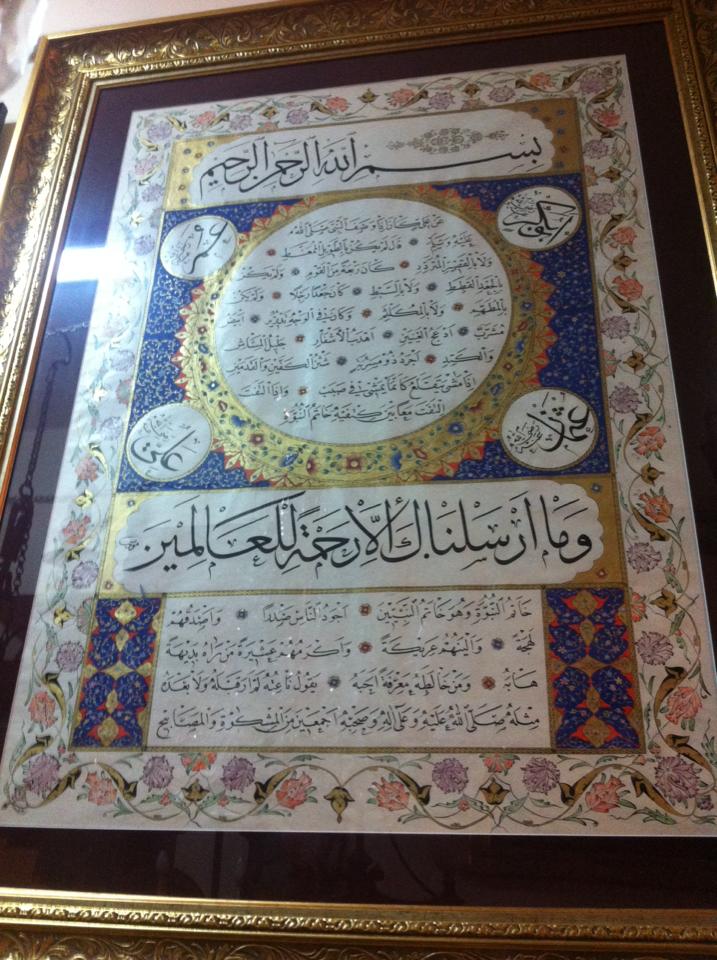 بسم الله الرحمن الرحيم
ابوبكر
عمر
عن علي كان اذا وصف النبي صلى الله
عليه وسلم قال لم يكن بالطويل الممغط
ولا بالقصير المتردد كان ربعة من القوم ولم يكن
بالجعد القطط ولا بالسبط كان جعدا رجلا ولم يكن
بالمطهم ولا بالمكلثم وكان في الوجه تدوير ابيض
مشرب ادعج العينين اهدب الاشفار جليل المشاش
والكتد اجرد ذو مسربة شثن الكفين والقدمين
اذا مشى يتقلع كانما يمشي في صبب واذا التفت
التفت معا بين كتفيه خاتم النبوة
عثمان
علي
وما ارسلناك الا رحمة للعالمين
خاتم النبوة وهو خاتم النبيين اجود الناس صدرا واصدقهم
لهجة والينهم عريكة واكرمهم عشيرة من راه بديهة
هابه ومن خالطه معرفة احبه يقول ناعته لم ار قبله ولا بعده
مثله صلى الله عليه وعلى اله وصحبه اجمعين من المشكوة والمصابيح